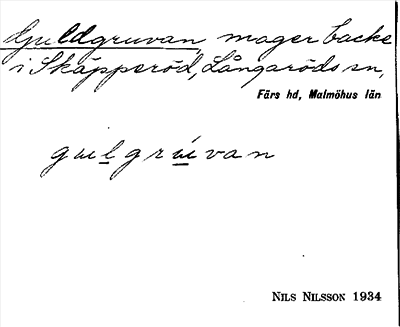 Guldgruvan, mager backe
i Skäpperöd, Långaröds sn,
Färs hd, Malmöhus län
gulgrúvan
NILS NILSSON 1934